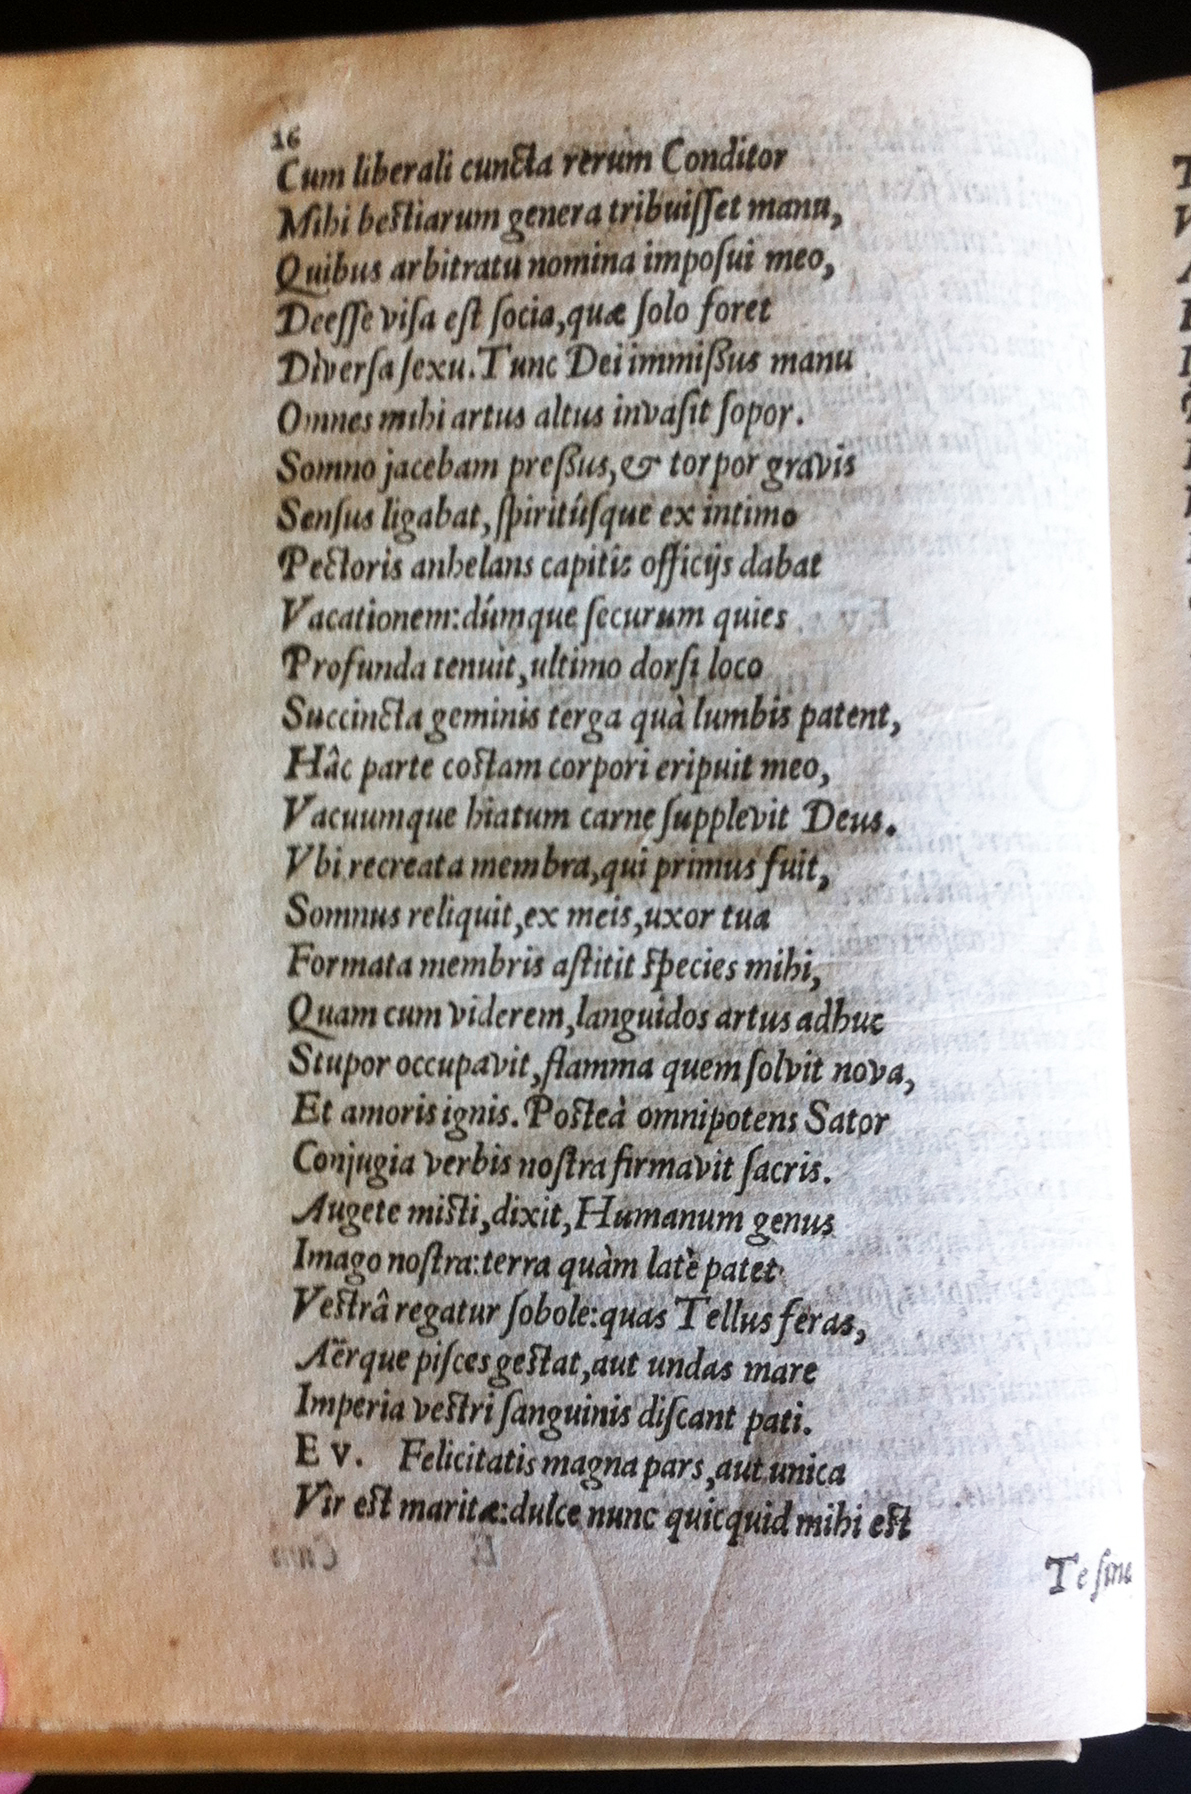 16
Cum liberali cuncta rerum Conditor
Mihi bestiarum genera tribuiſſet manu,
Quibus arbitratu nomina impoſui meo,
Deeſſe viſa eſt ſocia, quæ ſolo foret
Diverſa ſexu. Tunc Dei immißus manu
Omnes mihi artus altus invaſit ſopor.
Somno jacebam preßus, & torpor gravis
Senſus ligabat, ſpiritúſque ex intimo
Pectoris anhelans capitis officijs dabat
Vacationem: dúmque ſecurum quies
Profunda tenuit, ultimo dorſi loco
Succincta geminis terga quà lumbis patent,
Hâc parte costam corpori eripuit meo,
Vacuumque hiatum carne ſupplevit Deus.
Vbi recreata membra, qui primus fuit,
Somnus reliquit, ex meis, uxor tua
Formata membris aſtitit species mihi,
Quam cum viderem, languidos artus adhuc
Stupor occupavit, flamma quem ſolvit nova,
Et amoris ignis. Posteà omnipotens Sator
Conjugia verbis noſtra firmavit ſacris.
Augete misti, dixit, Humanum genus
Imago noſtra: terra quàm latè patet
Vestrâ regatur ſobole: quas Tellus feras,
Aërque piſces gestat, aut undas mare
Imperia vestri ſanguinis diſcant pati.
Ev. Felicitatis magna pars, aut unica
Vir est maritæ: dulce nunc quicquid mihi est
Te ſine